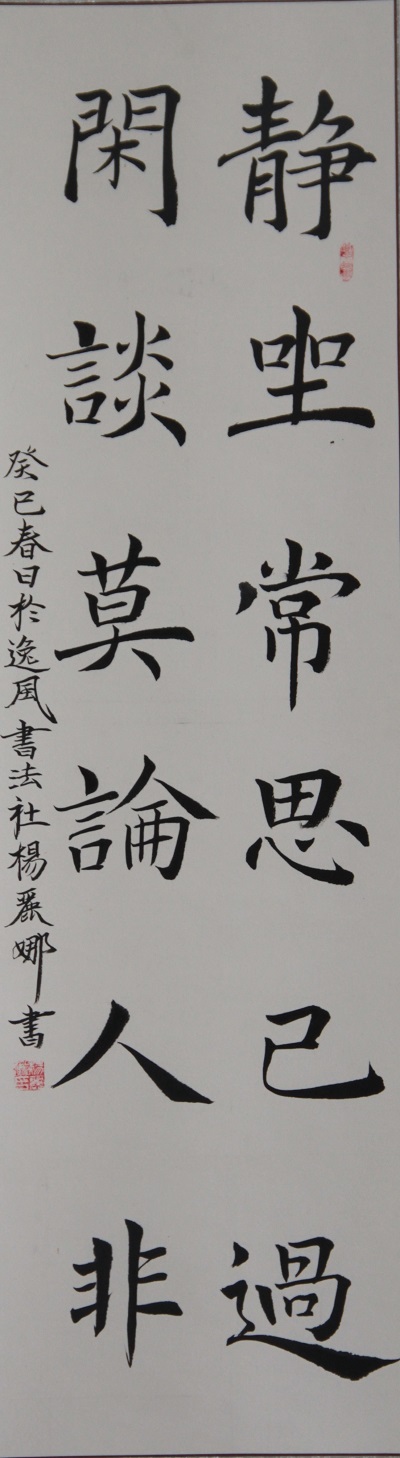 静坐常思己過
閑談莫論人非
癸巳春日於逸風書法社楊麗娜書